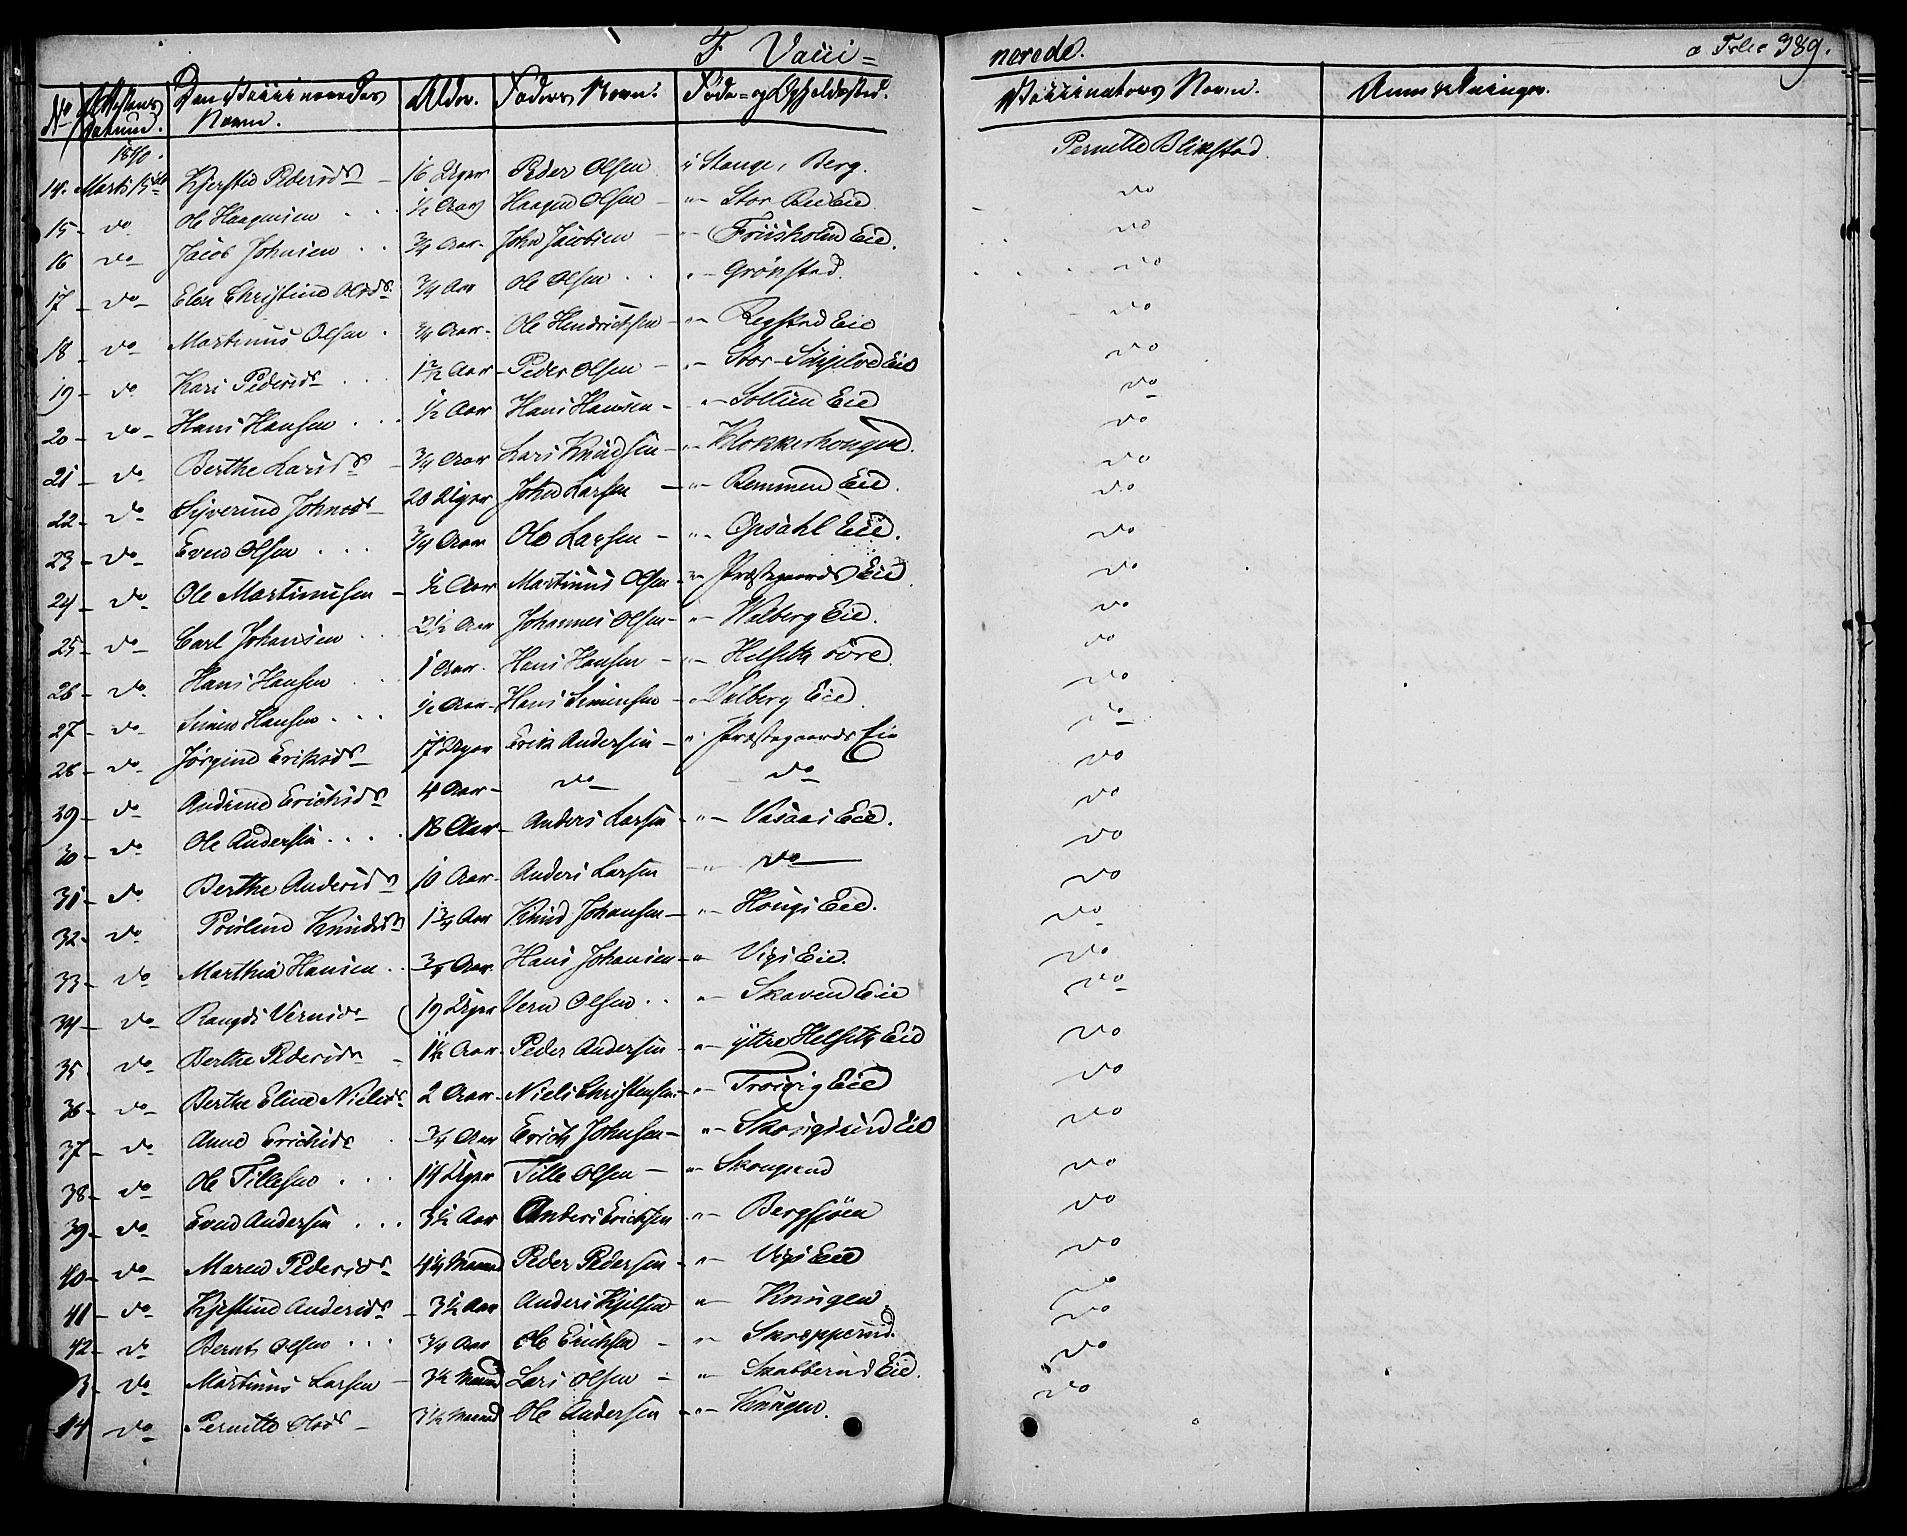 F. Vacci= nerede. a Folio 389.
No Attestens Datum. Den Vaccineredes Navn. Alder. Faders Navn. Føde- og Opholdssted. Vaccinators Navn. Anmærkninger.
1840.
14. Marts 15de Kjersted Pedersdr 16 Uger Peder Olsen i Stange, Berg. Pernille Blikstad.
15 - do Ole Haagensen ... 1/2 Aar Haagen Olsen - " - Stor Ree Eie do
16 do Jacob Johnsen .. 3/4 Aar. John Jacobsen - " Friisholm Eie. do
17 - do Elen Christine Olsdr 3/4 Aar Ole Olsen .. " - Grønstad. do
18 - do Martinus Olsen . 3/4 Aar. Ole Hendrichsen - " - Regstad Eie do
19 - do Kari Pedersdr ... 1 1/2 Aar - Peder Olsen - " - Stor-Skjelve Eie do
20 - do Hans Hansen ... 1/2 Aar Hans Hansen - " - Sollien Eie do
21 - do Berthe Larsdr - 3/4 Aar Lars Knudsen - " - Klokkerhougen. do
22 - do Syverine Johnsdr 20 Uger John Larsen - " - Remmen Eie. do
23 - do Even Olsen ... 3/4 Aar Ole Larsen - " - Opsahl Eie. do
24 - do Ole Martinusen - 1/2 Aar Martinus Olsen - " - Præstegaards Eie. do
25 - do Carl Johansen .. 2 1/2 Aar Johannes Olsen - " - Walberg Eie. do
26 - do Hans Hansen ... 1 Aar. Hans Hansen - " - Helseth øvre. do
27 - do Simen Hansen ... 1/2 Aar - Hans Simensen - " Valberg Eie. do
28 - do Jørgine Eriksdr 17 Uger Erik Andersen - " Præstegaards Eie do
29 - do Andrine Erichsdr 4 Aar - do do do
30 - do Ole Andersen .... 18 Aar - Anders Larsen - " - Vasaas Eie. do
31 - do Berthe Andersdr 10 Aar - Anders Larsen - " - do do
32 - do Knudsdr 1 3/4 Aar Knud Johansen - " - Hougs Eie. do
33 - do Marthia Hansen .. 3/4 Aar. Hans Johansen - " Vigs Eie. do
34 - do Rangdi Vernsdr 19 Uger Vern Olsen .. " - Skaven Eie do
35 . do Berthe Pedersdr - 1 1/2 Aar - Peder Andersen - " - yttre Helseth Eie do
36 - do Berthe Eline Nielsdr 2 Aar - Niels Christensen - " - Frøivig Eie do
37 - do Anne Erichsdr . 3/4 Aar Erich Johnsen - " - Eie do
38 - do Ole Tillesen ... 14 Uger Tille Olsen - " - Skougrud do
39 - do Even Andersen ... 3 1/2 Aar Anders Erichsen " - Bergsjøen do
40 - do Maren Pedersdr 4 1/4 Maaned Peder Pedersen - " - Vigs Eie do
41 - do Kjestine Andersdr - 3 1/2 Aar Anders Kjelsen " - Knugen. do
42 - do Bernt Olsen ... 3/4 Aar Ole Erichsen - " - Skrepperud. do
3 - do Martinus Larsen - 3 1/2 Maaned Lars Olsen - " - Skabberud Eie. do
44 do Pernille Olsdr - 3 1/2 Maaned Ole Andersen - " - Knugen. do